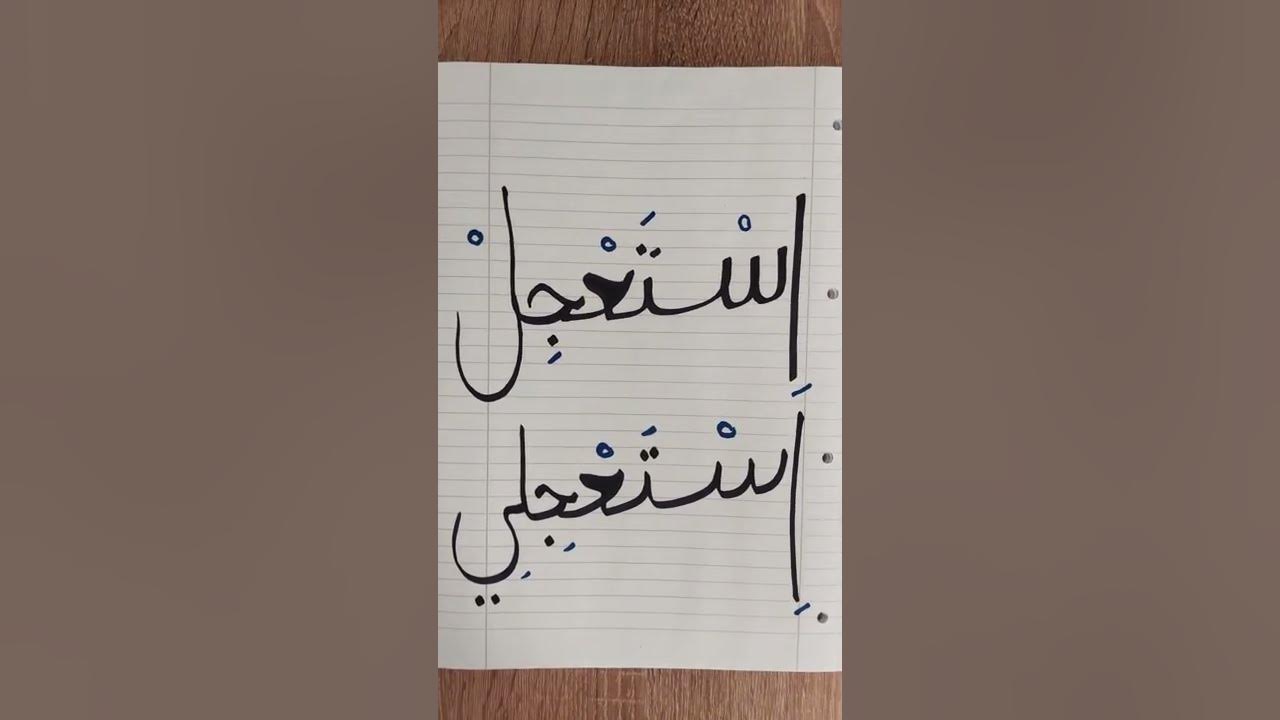 اِسْتَعْجِلْ
اِسْتَعْجِلِي